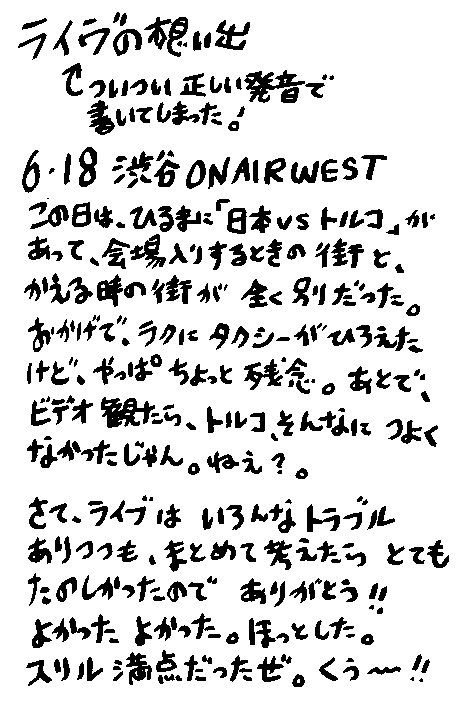 ライヴの想い出
ついつい正しい発音で
書いてしまった!
6・18 渋谷 ON AIR WEST
この日は、ひるまに「日本vsトルコ」が
あって、会場入りするときの街と、
かえる時の街が全く別だった。
おかげで、ラクにタクシーがひろえた
けど、やっぱちょっと残念。あとで、
ビデオ観たら、トルコ、そんなにつよく
なかったじゃん。ねぇ?。
さて、ライブはいろんなトラブル
ありつつも、まとめて考えたらとても
たのしかったのでありがとう!!
よかったよかった。ほっとした。
スリル満点だったぜ。くぅ〜!!